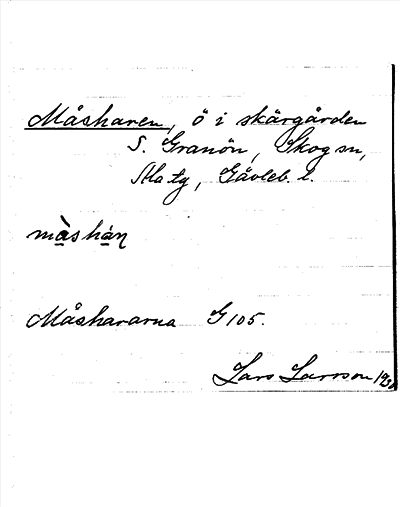 Måsharen, ö i skärgården
S. Granön, Skog sn,
Ala tg, Gävleb. l.
màshán
Måshararna G 105.
Lars Larsson